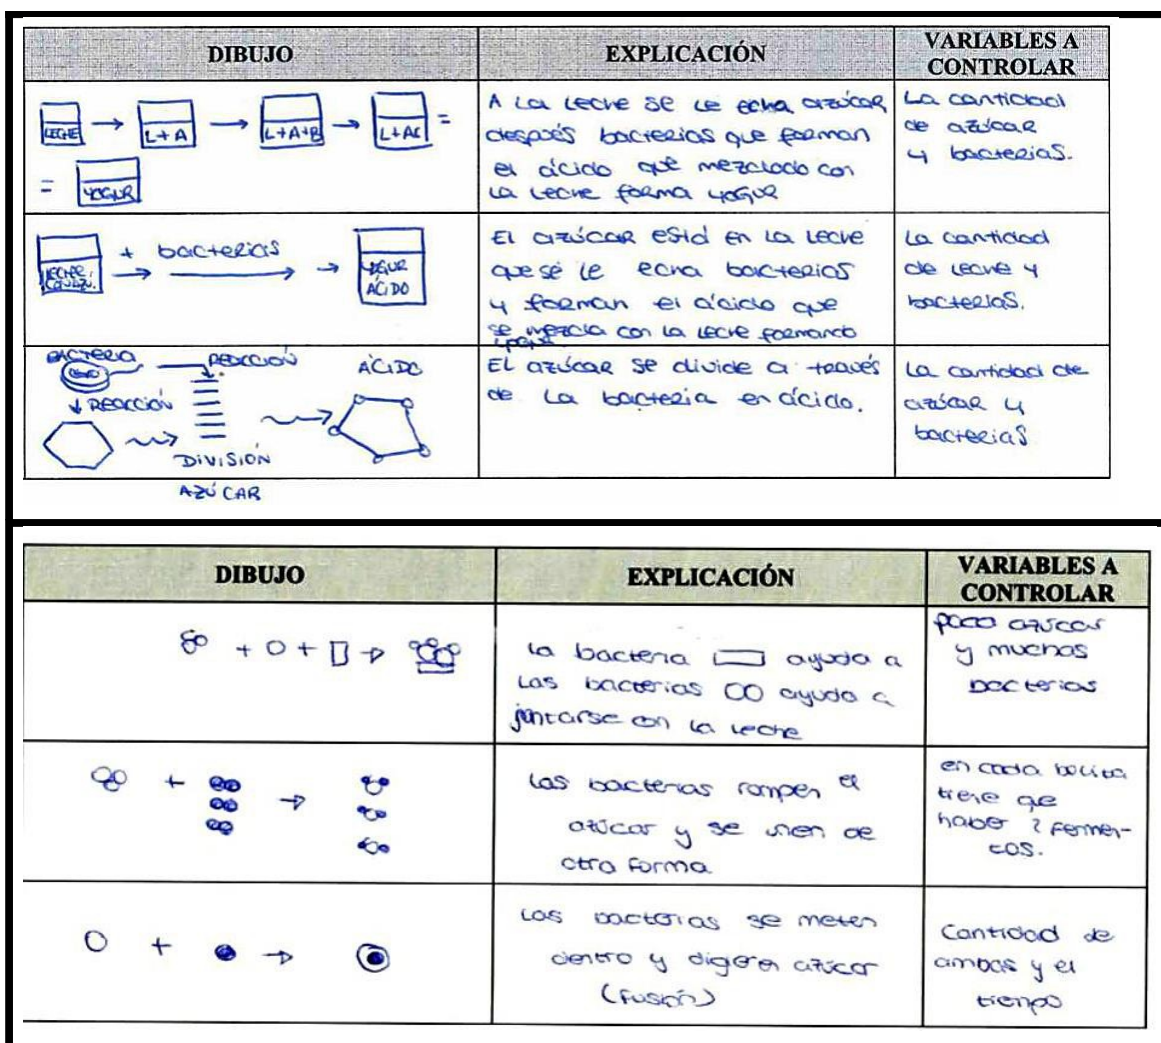 DIBUJO
EXPLICACIÓN
VARIABLES A
CONTROLAR
LECHE → L+A → L+A+B → L+AC =
= YOGUR
A La Leche se le echa azúcar
después bacterias que forman
el ácido que mezclado con
La Leche forma yogur
La cantidad
de azúcar
y bacterias.
+ bacterias
LECHE
YOGUR
ÁCIDO
El azúcar está en la leche
que se le echa bacterias
y forman el ácido que
se mezcla con la leche formando
yogur
La cantidad
de leche y
bacterias.
BACTERIA
REACCIÓN
ÁCIDO
REACCIÓN
DIVISIÓN
AZÚCAR
EL azúcar se divide a través
de La bacteria en ácido.
La cantidad de
azúcar y
bacterias
DIBUJO
EXPLICACIÓN
VARIABLES A
CONTROLAR
la bacteria ayuda a
las bacterias ayuda a
juntarse con la leche
poco azúcar
y muchas
bacterias
Las bacterias rompen el
azúcar y se unen de
otra forma
en cada bolita
tiene que
haber 2 fermen-
tos.
Las bacterias se meten
dentro y digeren azúcar
(fusión)
Cantidad de
ambos y el
tiempo